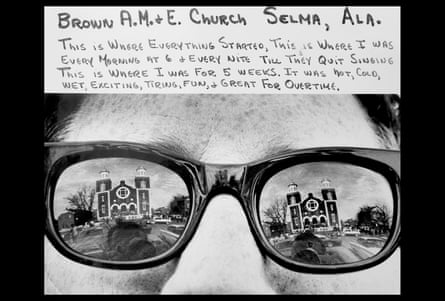 BROWN A.M.&E. CHURCH SELMA, ALA.
THIS IS WHERE EVERYTHING STARTED, THIS IS WHERE I WAS
EVERY MORNING AT 6 & EVERY NITE TILL THEY QUIT SINGING
THIS IS WHERE I WAS FOR 5 WEEKS. IT WAS HOT, COLD,
WET, EXCITING, TIRING, FUN, & GREAT FOR OVERTIME.